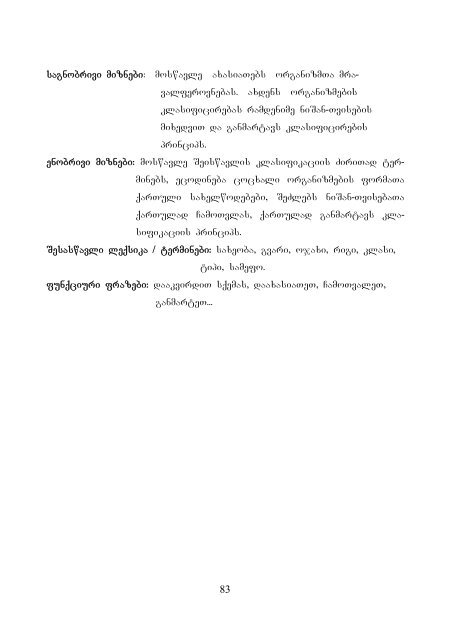 საგნობრივი მიზნები: მოსწავლე ახასიათებს ორგანიზმთა მრა-
ვალფეროვნებას. ახდენს ორგანიზმების
კლასიფიცირებას რამდენიმე ნიშან-თვისების
მიხედვით და განმარტავს კლასიფიცირების
პრინციპს.
ენობრივი მიზნები: მოსწავლე შეისწავლის კლასიფიკაციის ძირითად ტერ-
მინებს, ეცოდინება ცოცხალი ორგანიზმების ფორმათა
ქართული სახელწოდებები, შეძლებს ნიშან-თვისებათა
ქართულად ჩამოთვლას, ქართულად განმარტავს კლა-
სიფიკაციის პრინციპს.
შესასწავლი ლექსიკა / ტერმინები: სახეობა, გვარი, ოჯახი, რიგი, კლასი,
ტიპი, სამეფო.
ფუნქციური ფრაზები: დააკვირდით სქემას, დაახასიათეთ, ჩამოთვალეთ,
განმარტეთ...
83